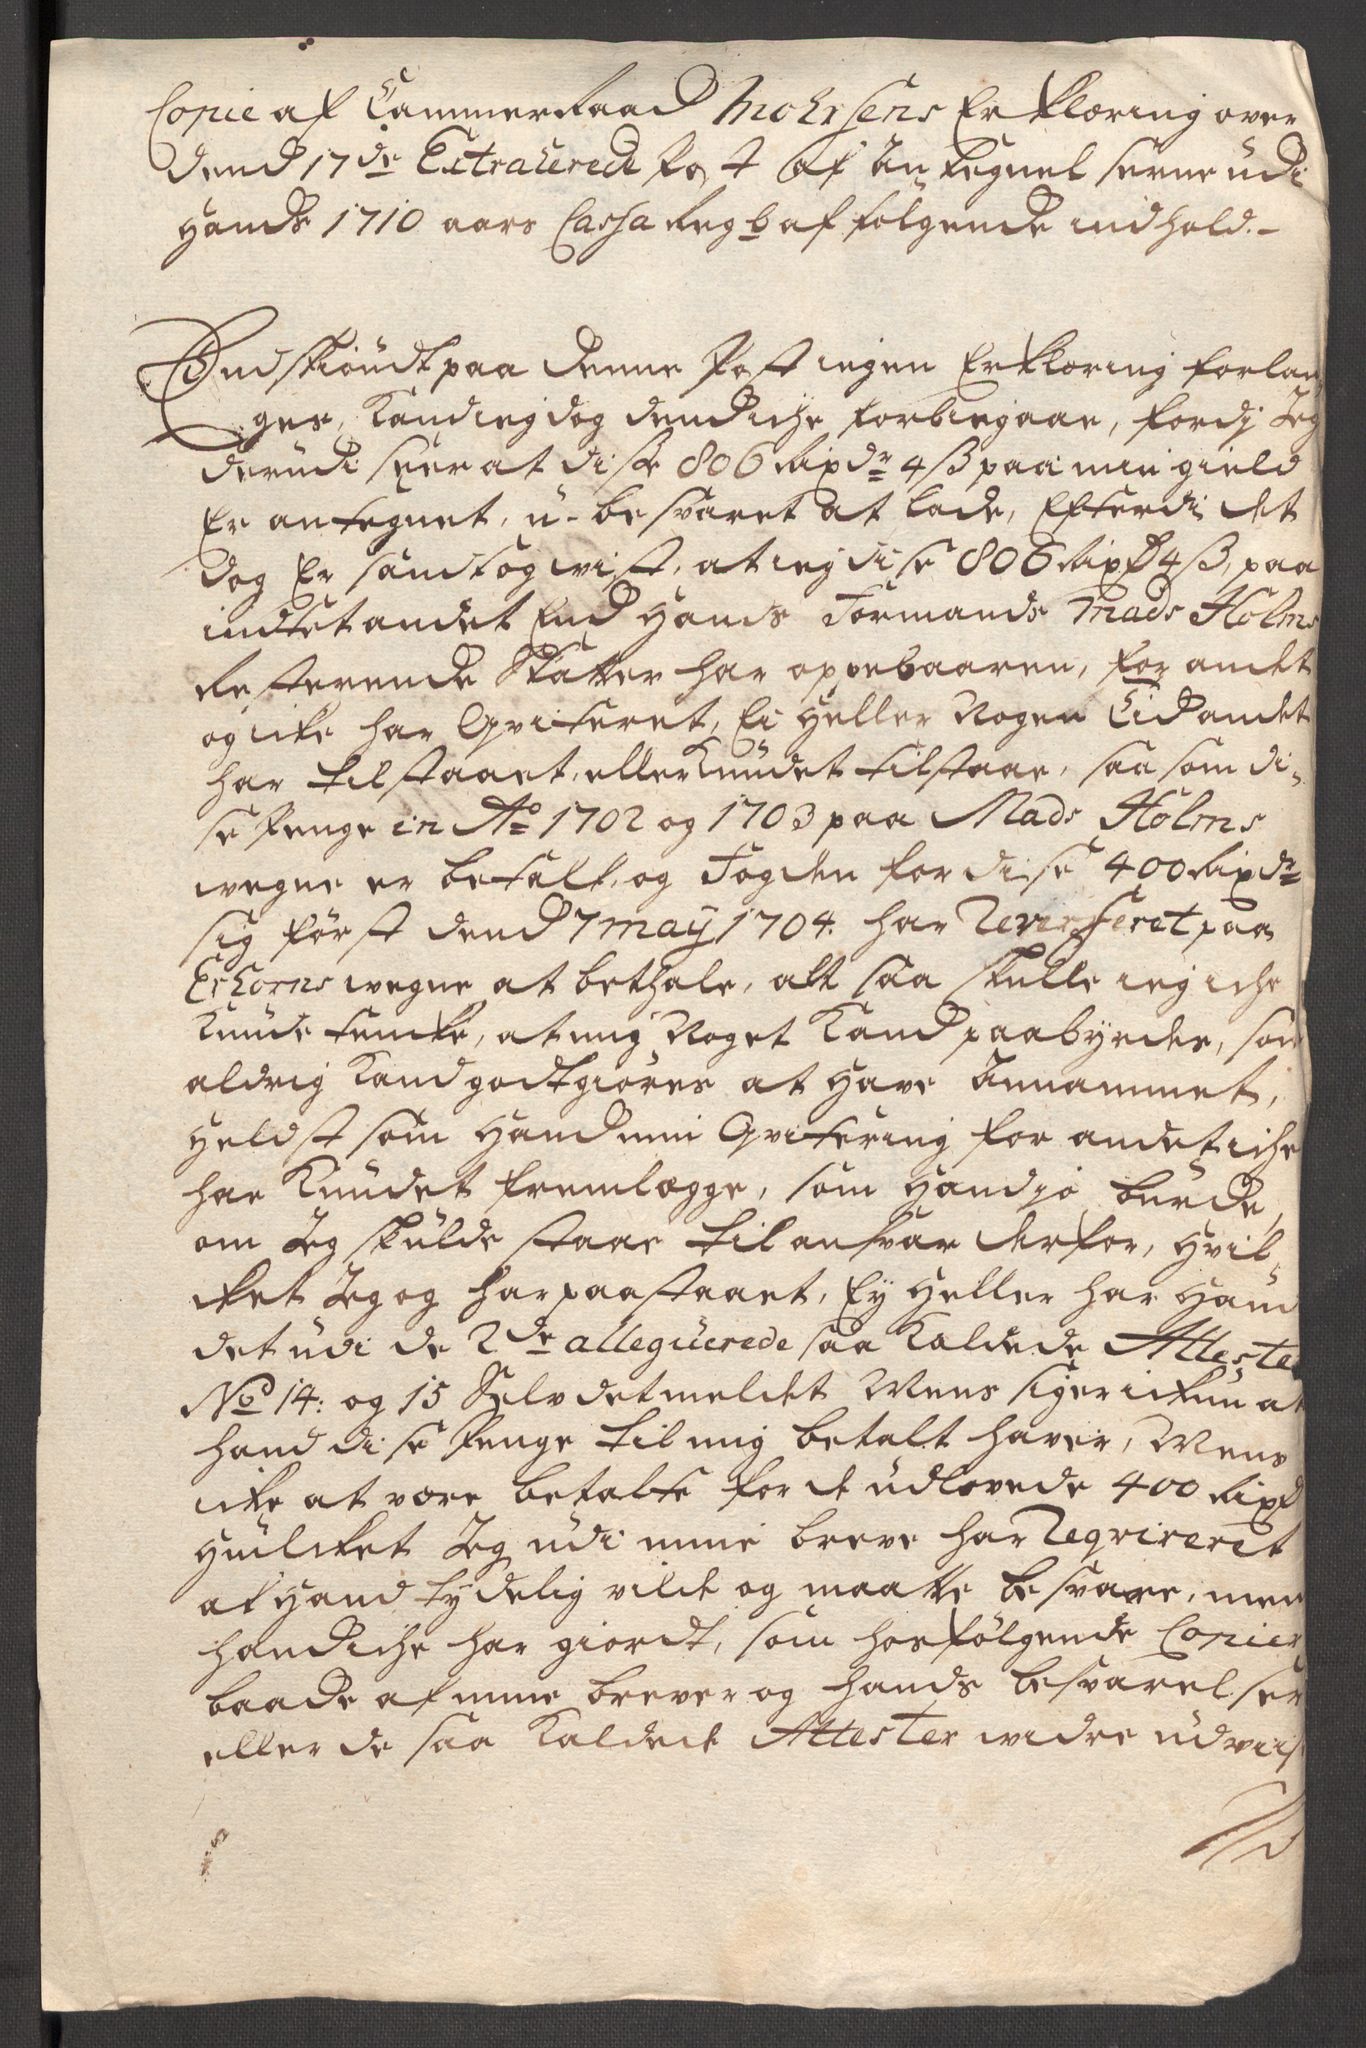 Copie af Cammerraad Mohrsens Erklæring over
dend 17de Extraherede Post af Antegnelserne udi
Hands 1710 aars Cassa Regb af følgende indhold.-
Endskiøndt paa denne Post ingen Erklæring forlan-
ges, Kand ieg dog dend iche forbiegaae, fordj Jeg
derudi seer at disse 806 Rixdr 4 ß paa min gield
Er antegnet, u-besvaret at lade, Efterdi det
dog Er sandt og wist, at ieg disse 806 Rixd 4 ß, paa
indtet andet End Hands Formands Mads Holms
Resterende Skatter har oppebaaren, for andet
og icke har Qviteret, Ei Heller Nogen Tid andet
har tilstaaet, eller Kundet tilstaae, saa som di-
se Penge in Ao 1702 og 1703 paa Mads Holms
wegne er betalt, og Fogden for disse 400 Rixdr
sig først dend 7 May 1704. har Reverseret paa
wegne at bethale, alt saa skulle ieg iche
Kunde tencke, at mig Noget Kand paabyrdes, som
aldrig Kand godtgiøres at Have Annammet,
Heldst som Hand min Qvitering for andet iche
har Kundet fremlægge, som Hand jo burde,
om Jeg skulde staae til ansvar derfor, Hvil-
cket Jeg og har paastaaet, Ey Heller har Hand
det udi de 2de alleguerede saa Kaldede Attester
No 14: og 15 Selv det meldet Mens siger ickun at
hand disse Penge til mig betalt haver, Mens
icke at være betalte for de udlovede 400 Rixd
Huilcket Jeg udi mine breve har Reqvireret
at Hand tydelig vilde og maatte besvare, men
hand iche har giordt, som hosfølgende Copier
baade af mine brever og hands besvarelser
eller de saa Kaldede Attester widre udviis